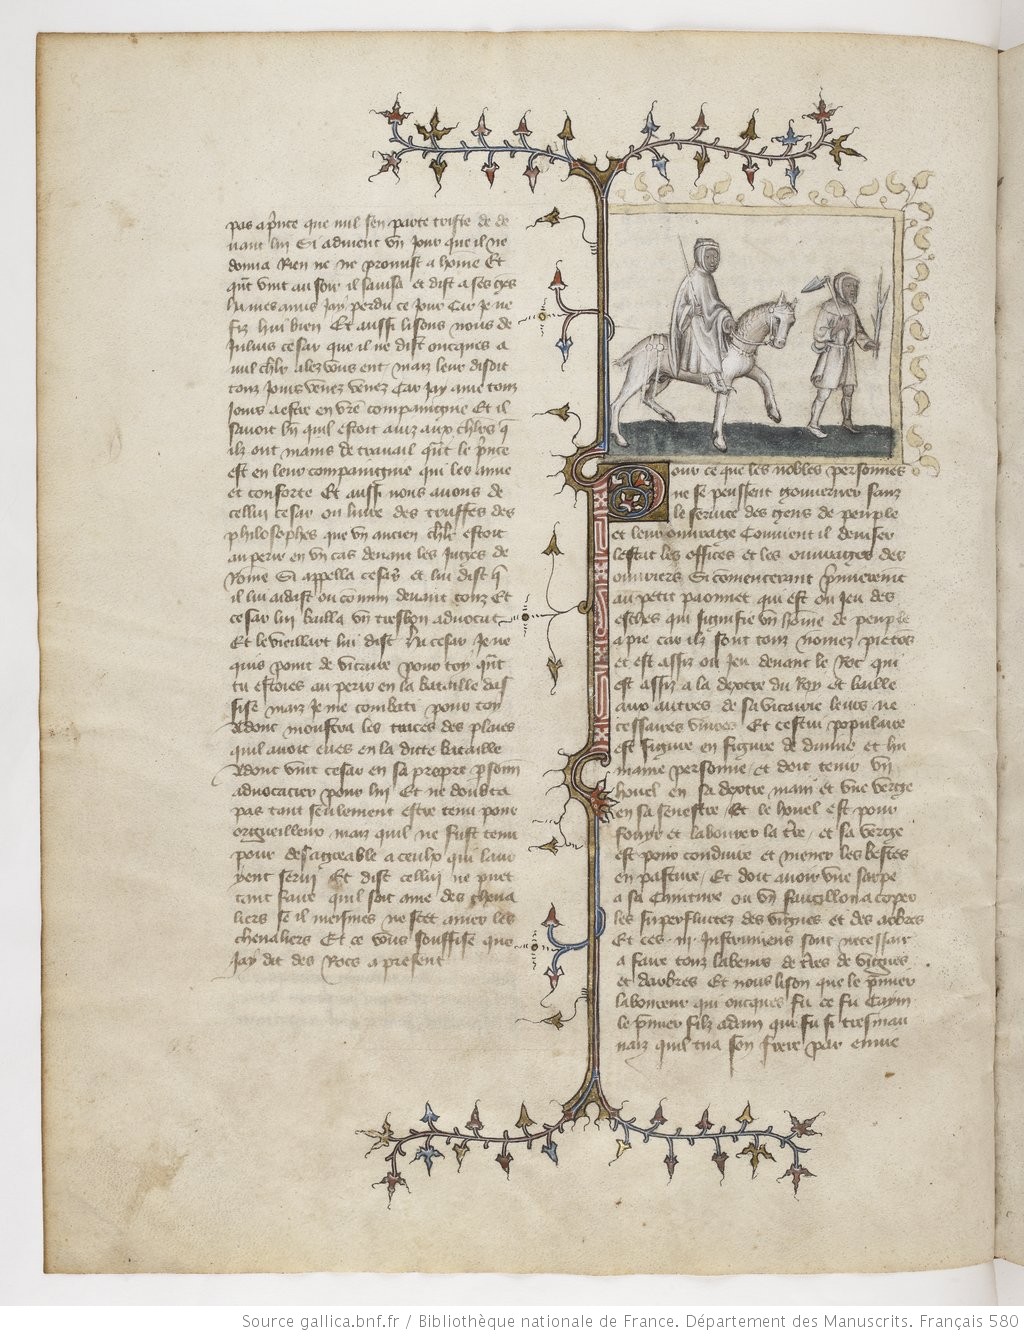 pas a p̃nce que nul sen parte triste de de
uant lui Si aduient vn jour que il ne
donna Rien ne ne promist a home Et
qñt vint au soir il sauisa et dist a ses
lui mes amis jay perdu ce jour Car je ne
fiz hui bien Et aussi lisons nous de
Julius cesar que il ne dist oncques a
nul chlr alez vous ent mais leur disoit
touz jours venez venez Car jay ame touz
jours a estre en vr̃e compaignie Et il
sauoit bñ quil estoit auiz aux chlr̃s q̃
ilz ont mains de trauail qñt le p̃nce
est en leur compaignie qui les aime
et conforte Et aussi nous auons de
cellui cesar ou liure des truffes des
philosophes que vn ancien chlr estoit
au perir en vn cas deuant les Juges de
Rome Si appella cesar et lui dist q̃
il lui aidast ou commun deuant touz Et
cesar lui bailla vn tresbon aduocat
Et le vieillart lui dist Ha cesar Je ne
quis point de vicaire pour toy qñt
tu estoies au perir en la bataille das
sise mais je me combati pour toy
Adonc monstra les traces des plaies
quil auoit eues en la dicte bataille
Adonc vint cesar en sa propre p̃sonñ
aduocacier pour lui Et ne doubta
pas tant seulement estre tenu pour
orgueilleux maiz quil ne fust tenu
pour desagreable a ceulx qui lauo
yent serui Et dist cellui ne puet
tant faire quil soit ame des cheua
liers se il meismes ne scet amer les
cheualiers Et ce vous souffise que
Jay dit des Rocs a present
Pour ce que les nobles personnes
ne se peussent gouuerner sanz
le seruice des gens de peuple
et leur ouurage Conuient il deuiser
lestat les offices et les ouurages des
ouuriers Si commencerent p̃mieremt
au petit paonnet qui est ou jeu des
esches qui signifie vn home de peuple
a pie car ilz sont touz nomez pietons
et est assiz ou jeu deuant le Roc qui
est assiz a la dextre du Roy et baille
aux autres de sa vicairie leurs ne
cessaires viures Et cestui populaire
est figure en figure de diuine et hu
maine personne et doit tenir vn
houel en sa dextre main et vne verge
en sa senestre Et le houel est pour
fouyr et labourer la tr̃e et sa verge
est pour conduire et mener les bestes
en pasture Et doit auoir vne sarpe
a sa Cainture ou vn faucillon a coper
les superfluitez des vignes et des arbres
Et ces .iii. Instrumens sont necessair̃
a faire touz labeurs de tr̃es de vignes
et darbres Et nous lison que le p̃mier
laboureur qui oncques fu ce fu Cayin
le p̃mier filz adam qui fu si tresmau
uaiz quil tua son frere par enuie
Source gallica.bnf.fr / Bibliothèque nationale de France. Département des Manuscrits. Français 580